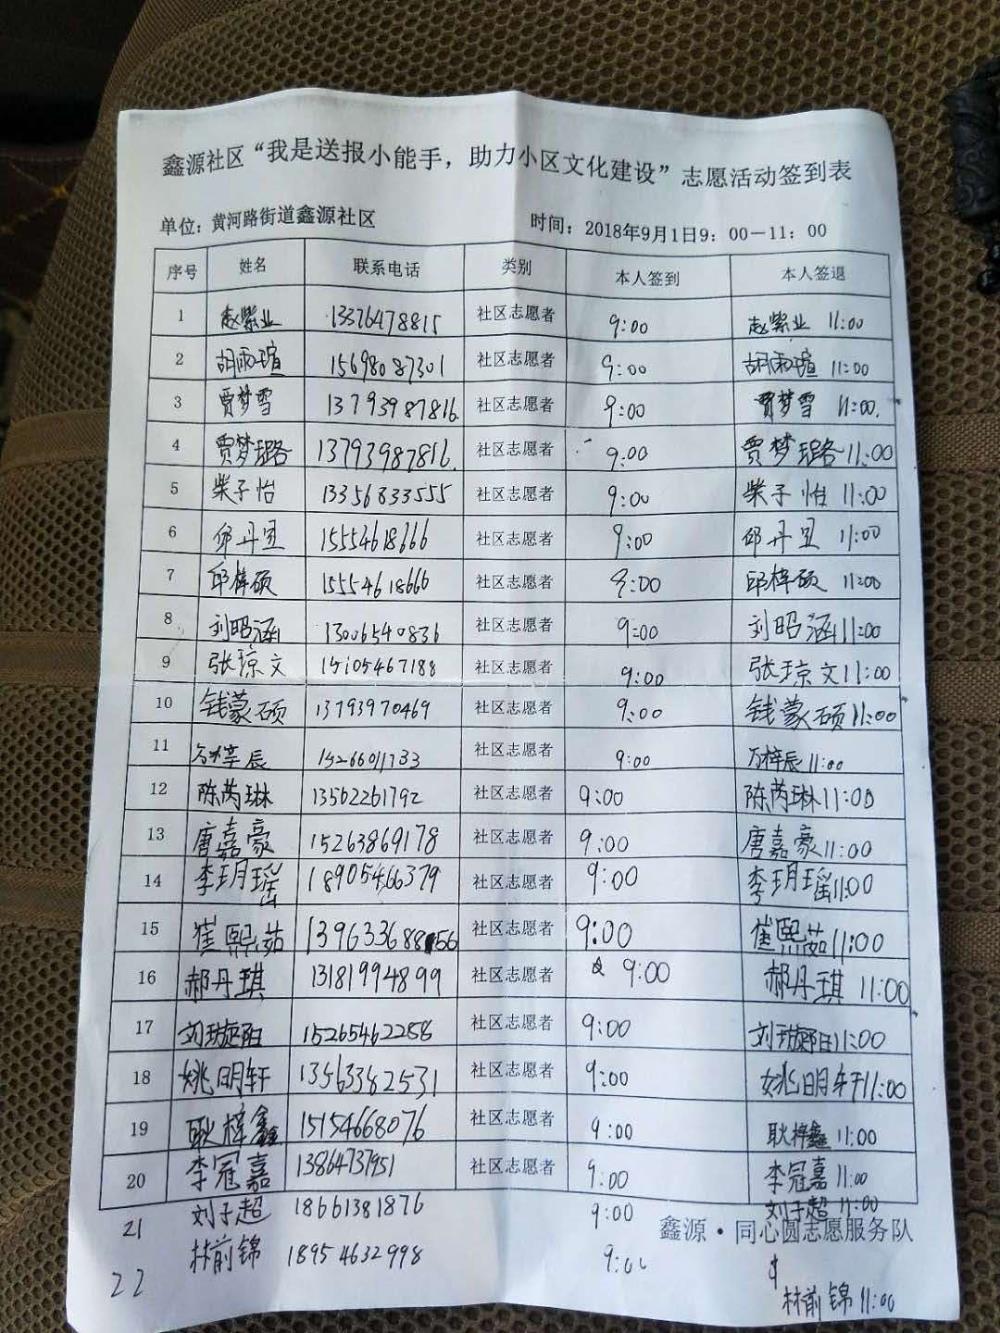 鑫源社区“我是送报小能手，助力小区文化建设”志愿活动签到表
单位：黄河路街道鑫源社区 时间：2018年9月1日9：00－11：00
序号 姓名 联系电话 类别 本人签到 本人签退
1 赵紫业 13376478815 社区志愿者 9:00 赵紫业 11:00
2 胡雨瑄 15698087301 社区志愿者 9:00 胡雨瑄 11:00
3 贾梦雪 13793987816 社区志愿者 9:00 贾梦雪 11:00.
4 贾梦璐 13793987816. 社区志愿者 9:00 贾梦璐 11:00
5 柴子怡 13356833555 社区志愿者 9:00 柴子怡 11:00
6 邱丹昱 15554618666 社区志愿者 9:00 邱丹昱 11:00
7 邱梓硕 15554618666 社区志愿者 9:00 邱梓硕 11:00
8 刘昭涵 13006540836 社区志愿者 9:00 刘昭涵 11:00
9 张琼文 15105467188 社区志愿者 9:00 张琼文 11:00
10 钱蒙硕 13793970469 社区志愿者 9:00 钱蒙硕 11:00
11 万梓辰 15266011733 社区志愿者 9:00 万梓辰 11:00
12 陈芮琳 13562261792 社区志愿者 9:00 陈芮琳 11:00
13 唐嘉豪 15263869178 社区志愿者 9:00 唐嘉豪 11:00
14 李玥瑶 18905466379 社区志愿者 9:00 李玥瑶 11:00
15 崔熙茹 社区志愿者 9:00 崔熙茹 11:00
16 郝丹琪 13181994899 社区志愿者 9:00 郝丹琪 11:00
17 15265462288 社区志愿者 9:00 11:00
18 姚明轩 13563382531 社区志愿者 9:00 姚明轩 11:00
19 耿梓鑫 15154668076 社区志愿者 9:00 耿梓鑫 11:00
20 李冠嘉 13864737951 社区志愿者 9:00 李冠嘉 11:00
21 刘子超 18661381876 9:00 刘子超 11:00
鑫源·同心圆志愿服务队
22 林前锦 18954632998 9:00 林前锦 11:00